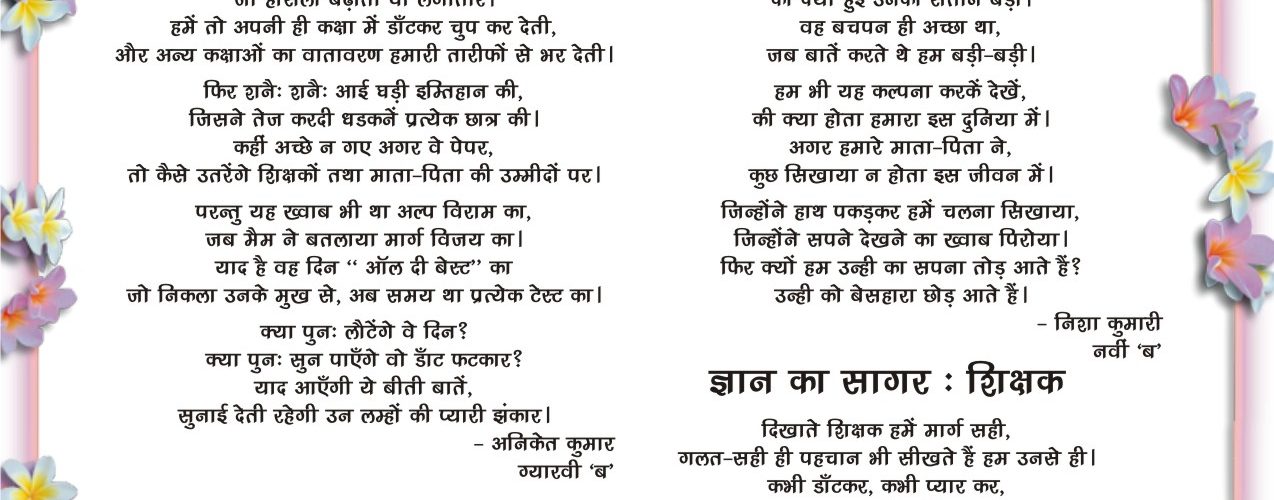 हमें तो अपनी ही कक्षा में डाँटकर चुप कर देती,
और अन्य कक्षाओं का वातावरण हमारी तारीफों से भर देती।
फिर शनैः शनैः आई घड़ी इम्तिहान की,
जिसने तेज करदी धडकनें प्रत्येक छात्र की।
कहीं अच्छे न गए अगर वे पेपर,
तो कैसे उतरेंगे शिक्षकों तथा माता-पिता की उम्मीदों पर।
परन्तु यह ख्वाब भी था अल्प विराम का,
जब मैम ने बतलाया मार्ग विजय का।
याद है वह दिन “ ऑल दी बेस्ट” का
जो निकला उनके मुख से, अब समय था प्रत्येक टेस्ट का।
क्या पुनः लौटेंगे वे दिन?
क्या पुनः सुन पाएँगे वो डाँट फटकार?
याद आएँगी ये बीती बातें,
सुनाई देती रहेगी उन लम्हों की प्यारी झंकार।
- अनिकेत कुमार
ग्यारवी ‘ब’
वह बचपन ही अच्छा था,
जब बातें करते थे हम बड़ी-बड़ी।
हम भी यह कल्पना करकें देखें,
की क्या होता हमारा इस दुनिया में।
अगर हमारे माता-पिता ने,
कुछ सिखाया न होता इस जीवन में।
जिन्होंने हाथ पकड़कर हमें चलना सिखाया,
जिन्होंने सपने देखने का ख्वाब पिरोया।
फिर क्यों हम उन्ही का सपना तोड़ आते हैं?
उन्ही को बेसहारा छोड़ आते हैं।
- निशा कुमारी
नवीं ‘ब’
ज्ञान का सागर : शिक्षक
दिखाते शिक्षक हमें मार्ग सही,
गलत-सही ही पहचान भी सीखते हैं हम उनसे ही।
कभी डाँटकर, कभी प्यार कर,